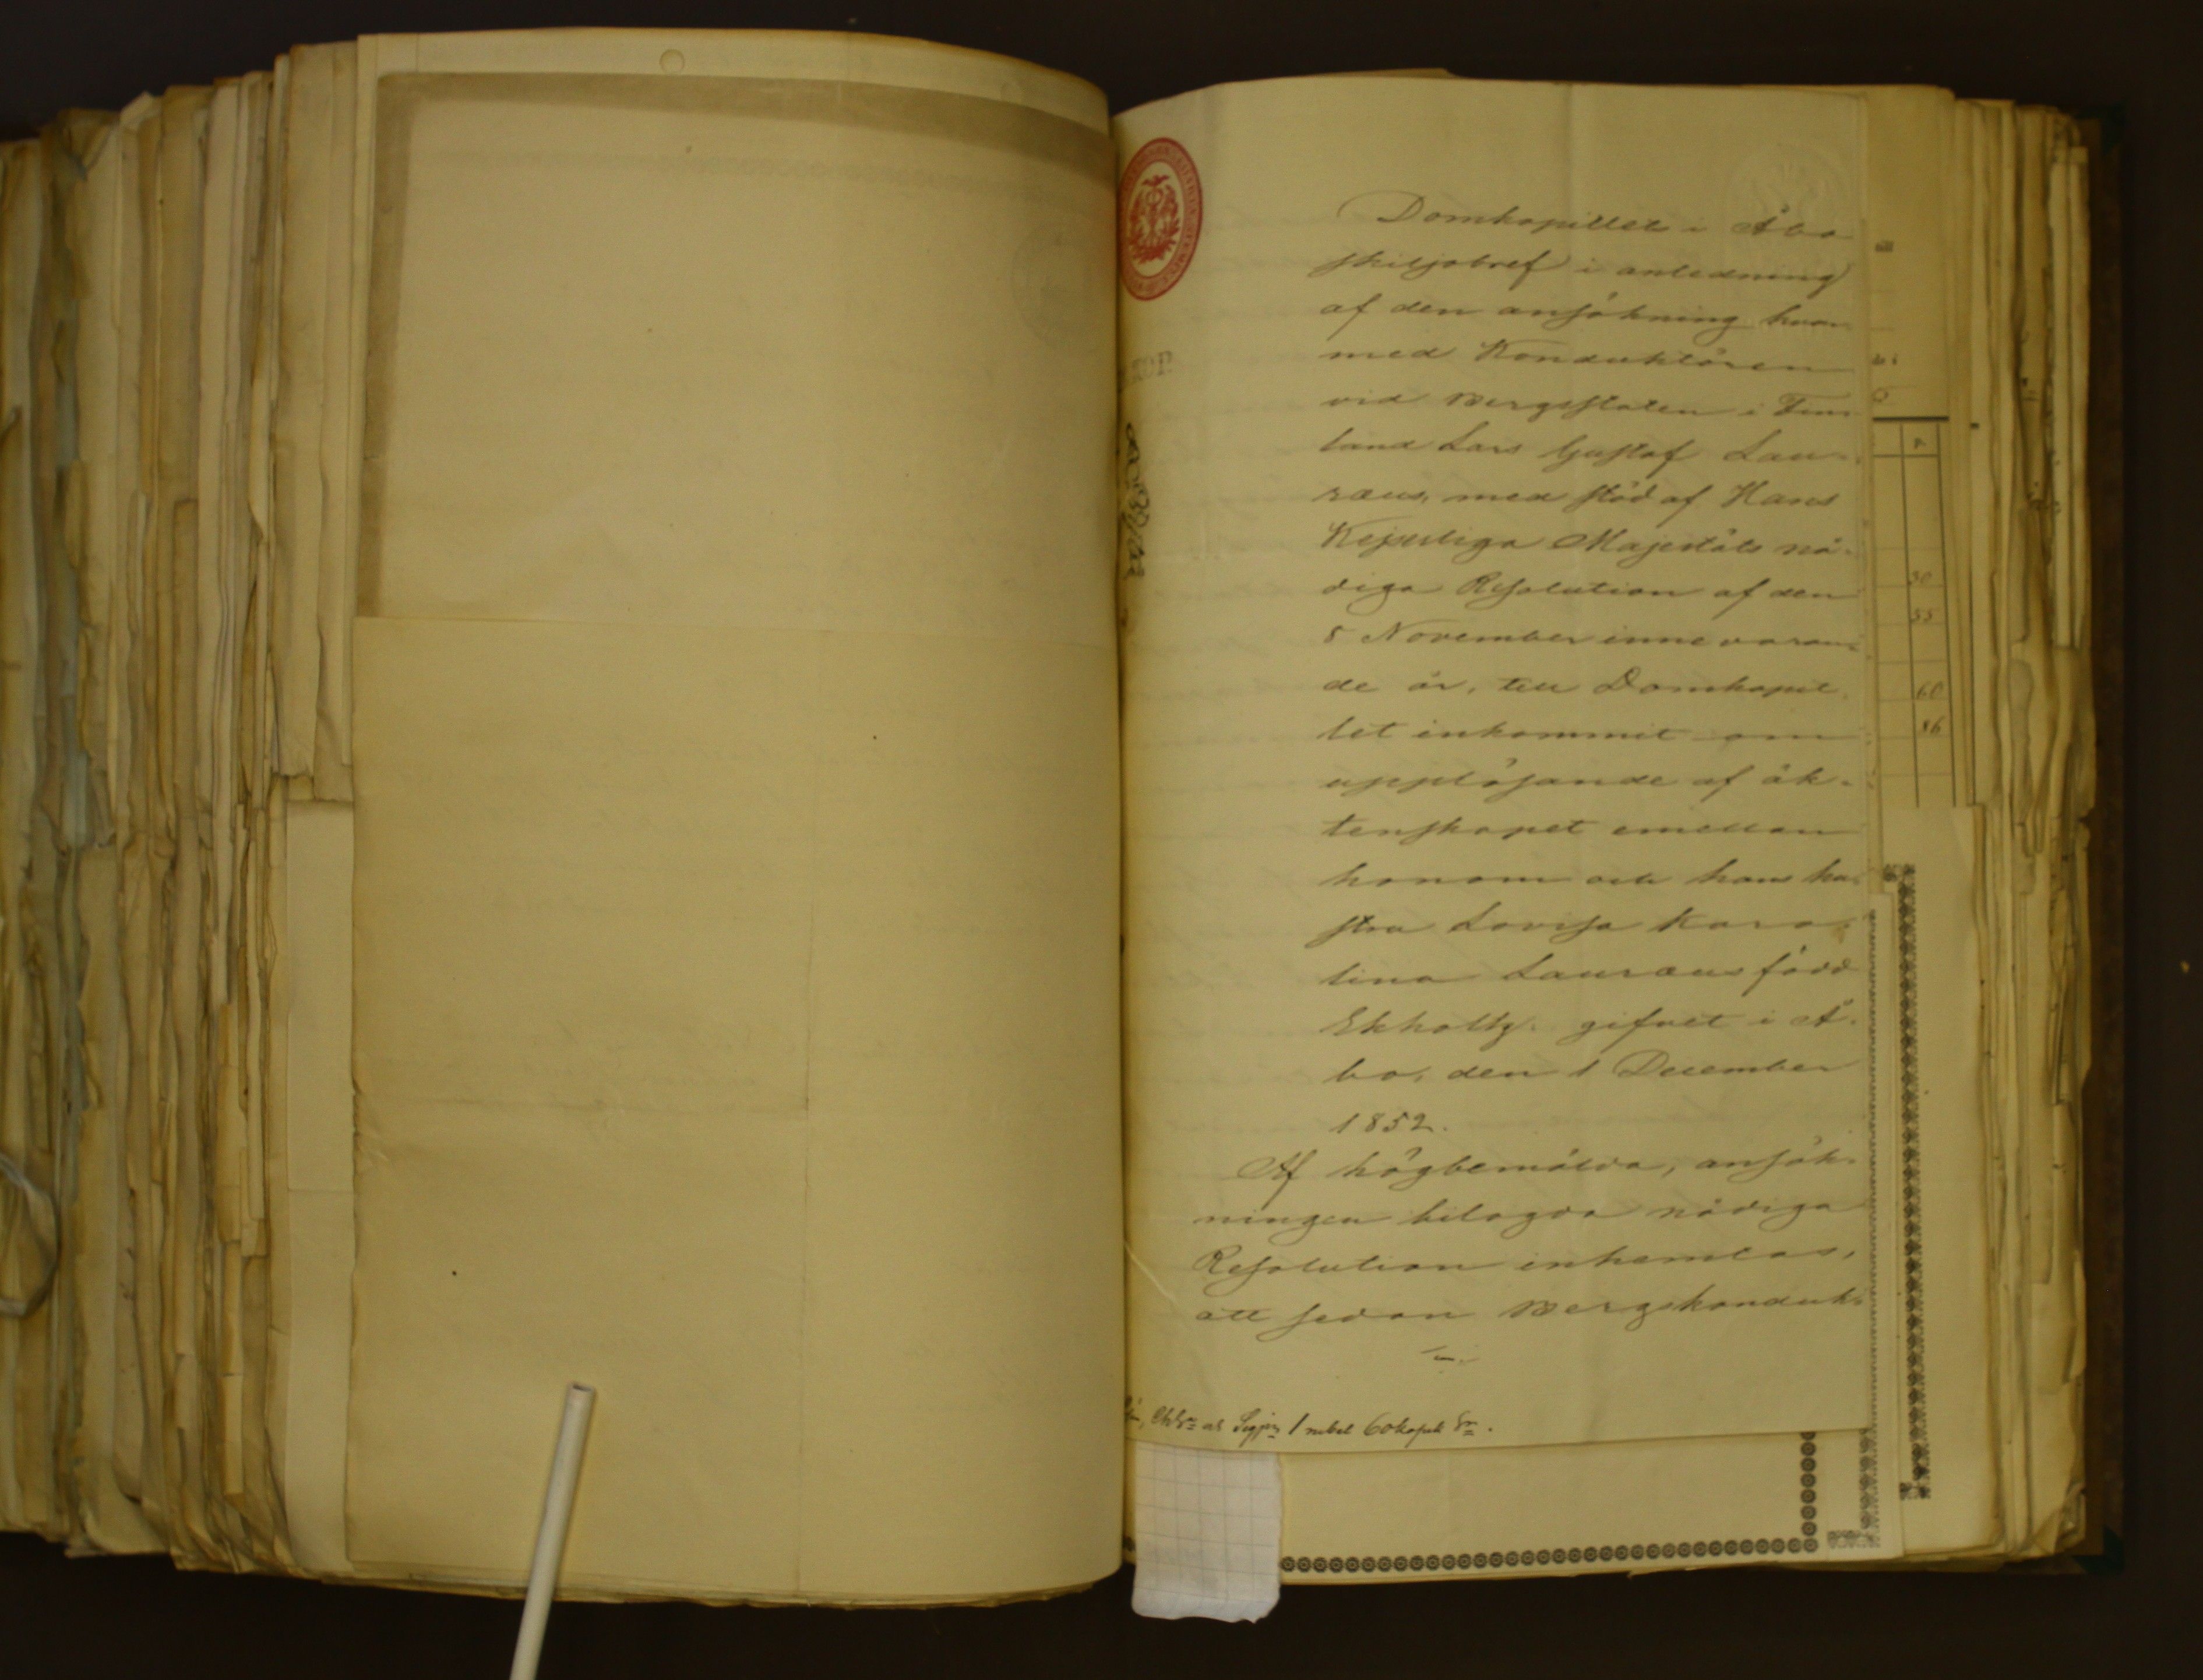 Domkapitlets i Åbo
skiljobref i anledning
af den ansökning hvar-
med Konduktören
vid Bergsstaten i Fin-
land Lars Gustaf Lau-
ræus, med stöd af Hans
Kejserliga Majestäts nå-
diga Resolution af den
5 November innevaran-
de år, till Domkapit-
let inkommit om
upplösande af äk-
tenskapet emellan
honom och hans hu-
stru Lovisa Karo-
lina Lauræus född
Ekholtz. gifvet i Å-
bo, den 1 December
1852.
Af högbemälda, ansök-
ningen bilagda nådiga
Resolution inhemtas,
att sedan Bergskonduk-
1 rubel 60 kopek
50
55
60
86